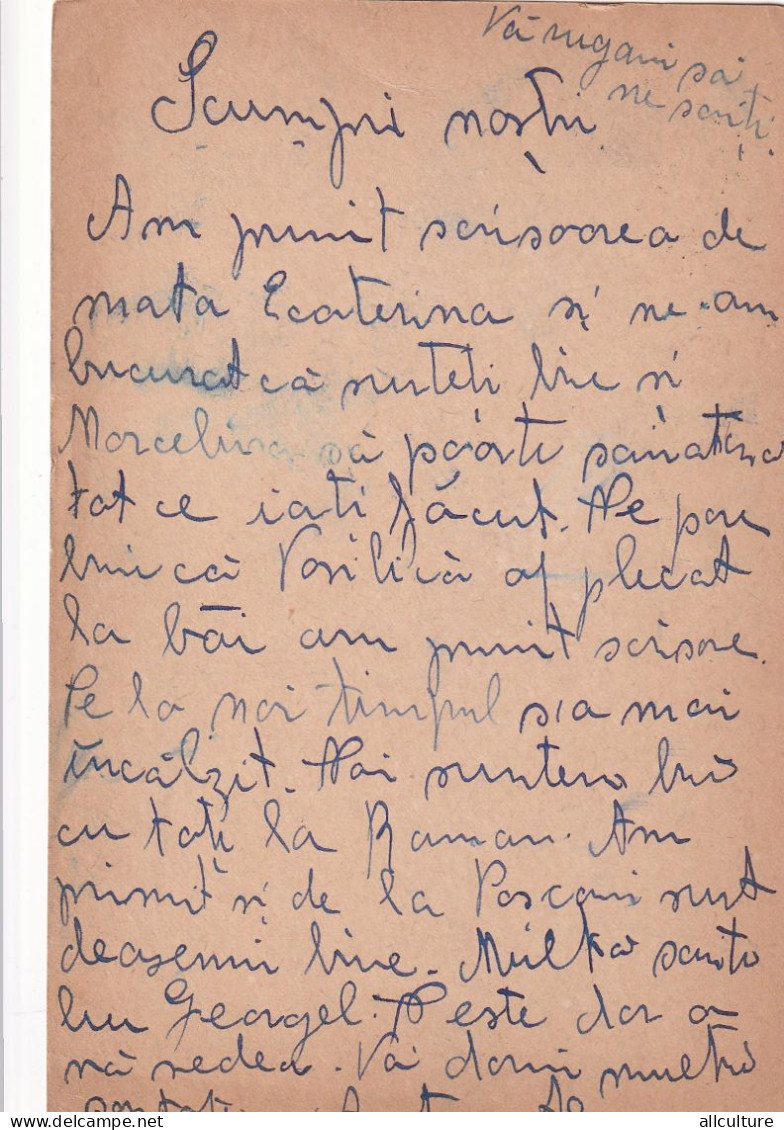 Vă rugăm să
ne scriți.
Scumpii noștri
Am primit scrisoarea de
mata Ecaterina și ne-am
bucurat că sunteti bine și
Marcelina să poarte sănătoasă
tot ce iati făcut. Ne pare
bine că Vasilică a plecat
la băi am primit scrisore
Pe la noi timpul s,a mai
încălzit. Noi suntem bine
cu toți la Roman. Am
primit și de la Pascani sunt
deasemini bine. Multă sănăt
lui Georgel. Ne este dor a
vă vedea. Vă dorim multă